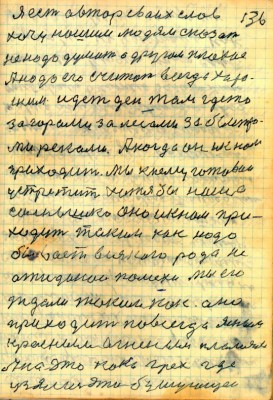 Я ест автор своих слов 136
хочу нашим людям сказат
ненадо думат о другом плохое
А надо его считат всегда хоро-
шим идет ден там где то
за горами за лесами за быстро-
ми реками. А когда он к нам
приходит. Мы к нему готовы
устретит хотя бы наше
солнышко оно к нам при-
ходит таким как надо
бывает всякого рода не
ожиданой помехи мы его
ждали таким как. а он
приходит повсегда яным
красным огненым пламям
А на это как грех где
взялся эта бушующая